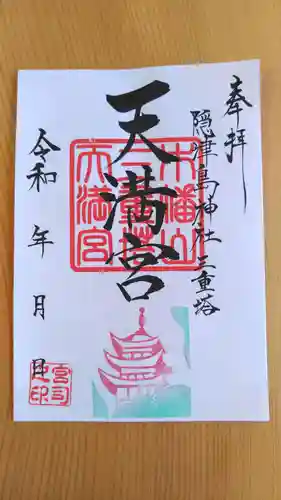 奉拝
隠津島神社 三重塔
天満宮
令和 年 月 日
木幡山
三重塔
天満宮
宮司之印